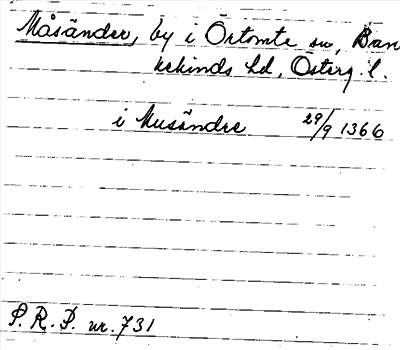 Måsänder, by i Örtomta sn, Ban
kekinds hd, Österg. l.
i Musändre 29/9 1366
P. R. P. nr. 731